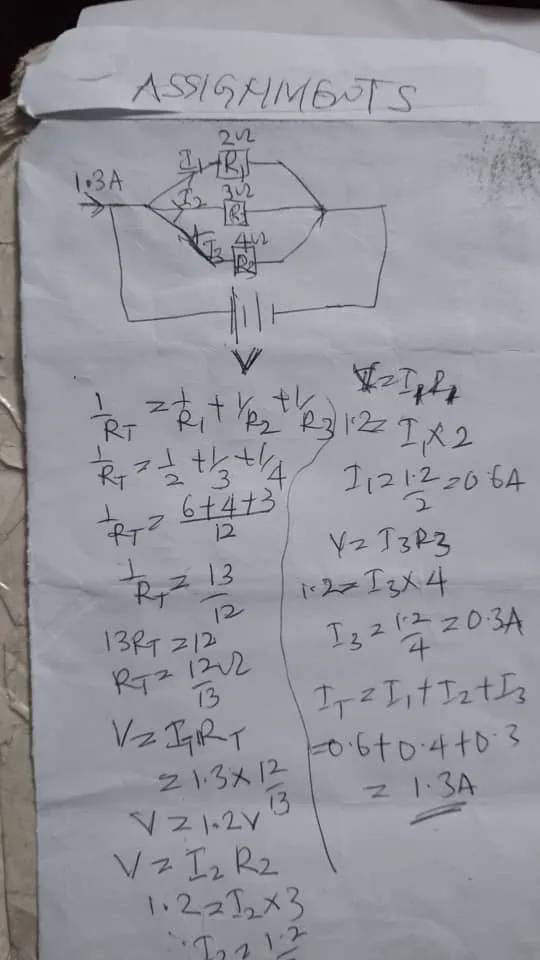 ASSIGNMENTS
2Ω
I1 R1
1.3A
I2 3Ω
R
I3 4Ω
V
1/RT = 1/R1 + 1/R2 + 1/R3
1/RT = 1/2 + 1/3 + 1/4
1/RT = 6+4+3/12
1/RT = 13/12
13RT = 12
RT = 12/13 Ω
V = ITRT
= 1.3 × 12/13
V = 1.2V
V = I2 R2
1.2 = I2 × 3
I2 = 1.2/
V = I1 R1
1.2 = I1 × 2
I1 = 1.2/2 = 0.6A
V = I3R3
1.2 = I3 × 4
I3 = 1.2/4 = 0.3A
IT = I1 + I2 + I3
= 0.6 + 0.4 + 0.3
= 1.3A